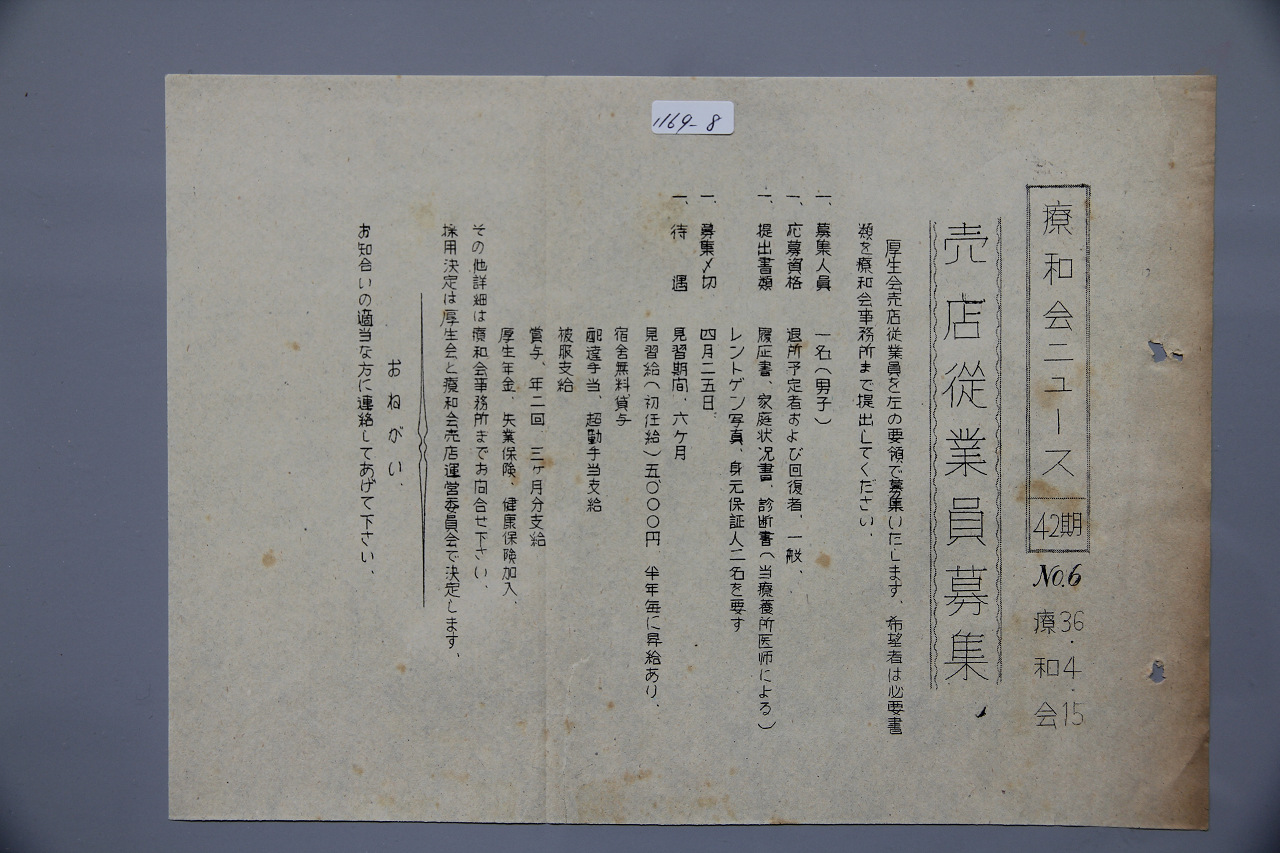 1169-8
療和会ニュース 42期
No.6
36・4・15
療和会
売店従業員募集
厚生会売店従業員を左の要領で募集いたします、希望者は必要書
類を療和会事務所まで提出してください、
一、募集人員 一名(男子)
一、応募資格 退所予定者および回復者、一般、
一、提出書類 履歴書、家庭状況書、診断書(当療養所医師による)
レントゲン写真、身元保証人二名を要す
一、募集〆切 四月二五日、
一、待遇 見習期間、六ヶ月
見習給(初任給)五、〇〇〇円、半年毎に昇給あり、
宿舎無料貸与
配達手当、超勤手当支給
被服支給
賞与、年二回、三ヶ月分支給
厚生年金、失業保険、健康保険加入、
その他詳細は療和会事務所までお問合せ下さい、
採用決定は厚生会と療和会売店運営委員会で決定します、
おねがい、
お知合いの適当な方に連絡してあげて下さい、